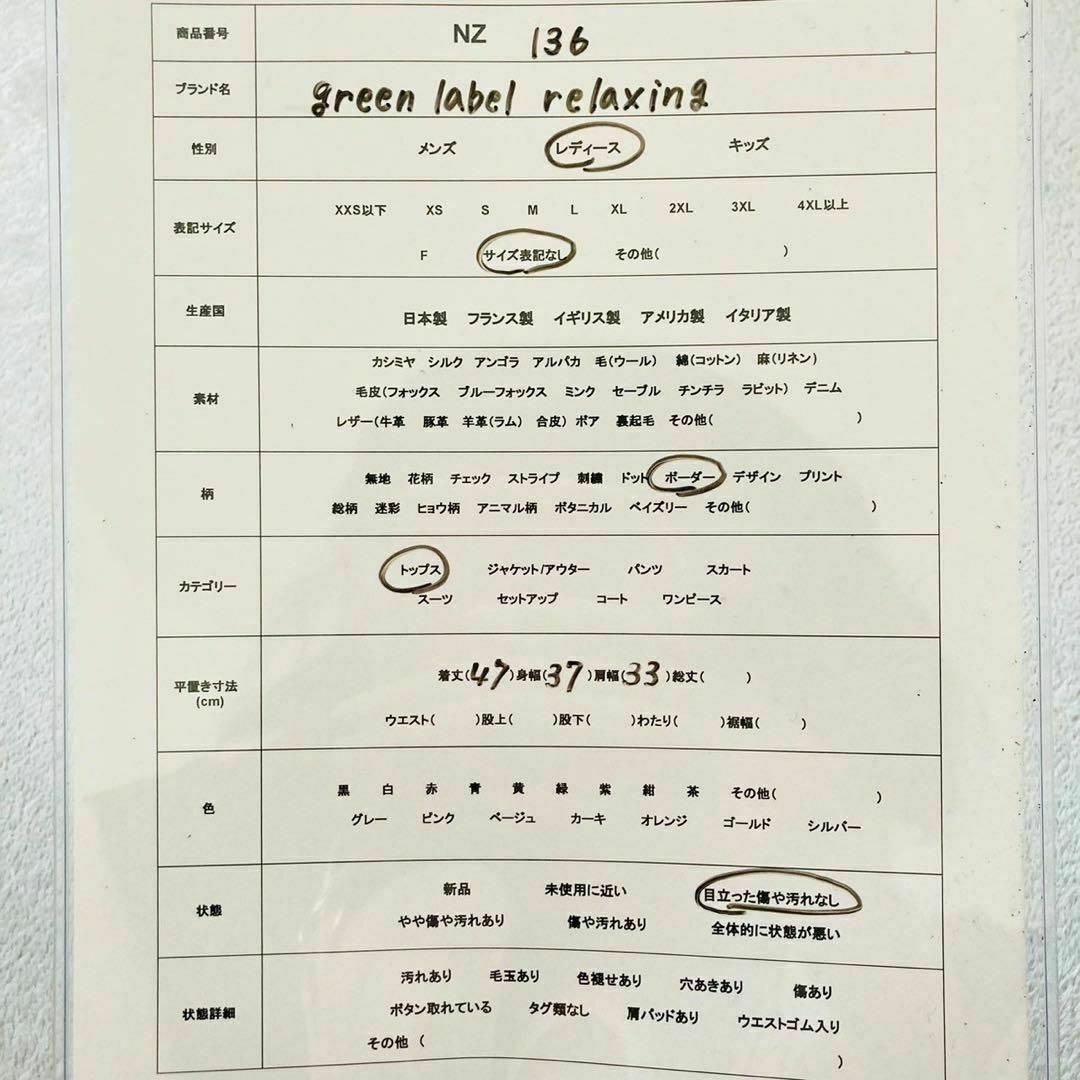 商品番号 NZ 136
ブランド名 green label relaxing
性別 メンズ レディース キッズ
表記サイズ
XXS以下 XS S M L XL 2XL 3XL 4XL以上
F サイズ表記なし その他( )
生産国 日本製 フランス製 イギリス製 アメリカ製 イタリア製
素材
カシミヤ シルク アンゴラ アルパカ 毛(ウール) 綿(コットン) 麻(リネン)
毛皮(フォックス ブルーフォックス ミンク セーブル チンチラ ラビット) デニム
レザー(牛革 豚革 羊革(ラム) 合皮) ボア 裏起毛 その他( )
柄
無地 花柄 チェック ストライプ 刺繍 ドット ボーダー デザイン プリント
総柄 迷彩 ヒョウ柄 アニマル柄 ボタニカル ペイズリー その他( )
カテゴリー
トップス ジャケット/アウター パンツ スカート
スーツ セットアップ コート ワンピース
平置き寸法
(cm)
着丈(47)身幅(37)肩幅(33)総丈( )
ウエスト( )股上( )股下( )わたり( )裾幅( )
色
黒 白 赤 青 黄 緑 紫 紺 茶 その他( )
グレー ピンク ベージュ カーキ オレンジ ゴールド シルバー
状態
新品 未使用に近い 目立った傷や汚れなし
やや傷や汚れあり 傷や汚れあり 全体的に状態が悪い
状態詳細
汚れあり 毛玉あり 色褪せあり 穴あきあり 傷あり
ボタン取れている タグ類なし 肩パッドあり ウエストゴム入り
その他 ( )